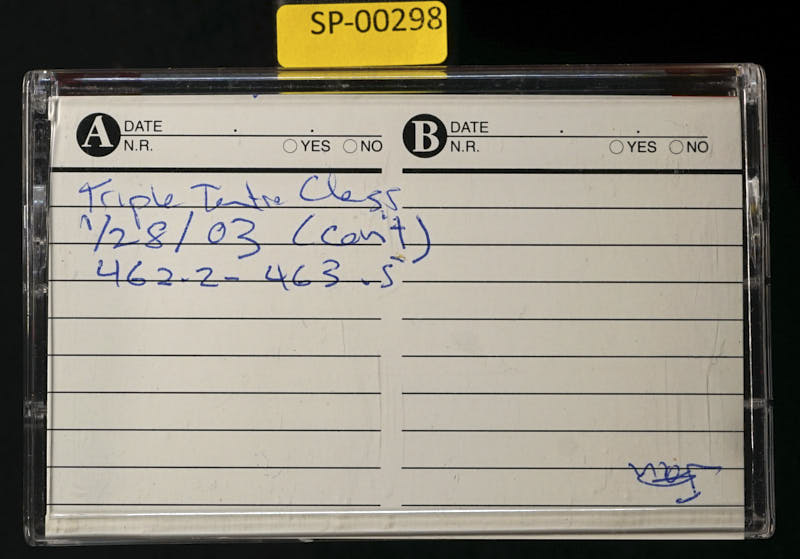 SP-00298
A DATE
N.R. YES NO
B DATE
N.R. YES NO
Triple Tantra Class
1/28/03 (con't)
462.2- 463.5